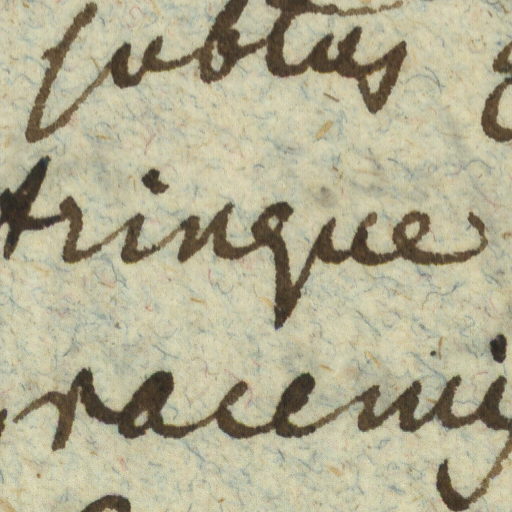 subtus
trinque
racemis